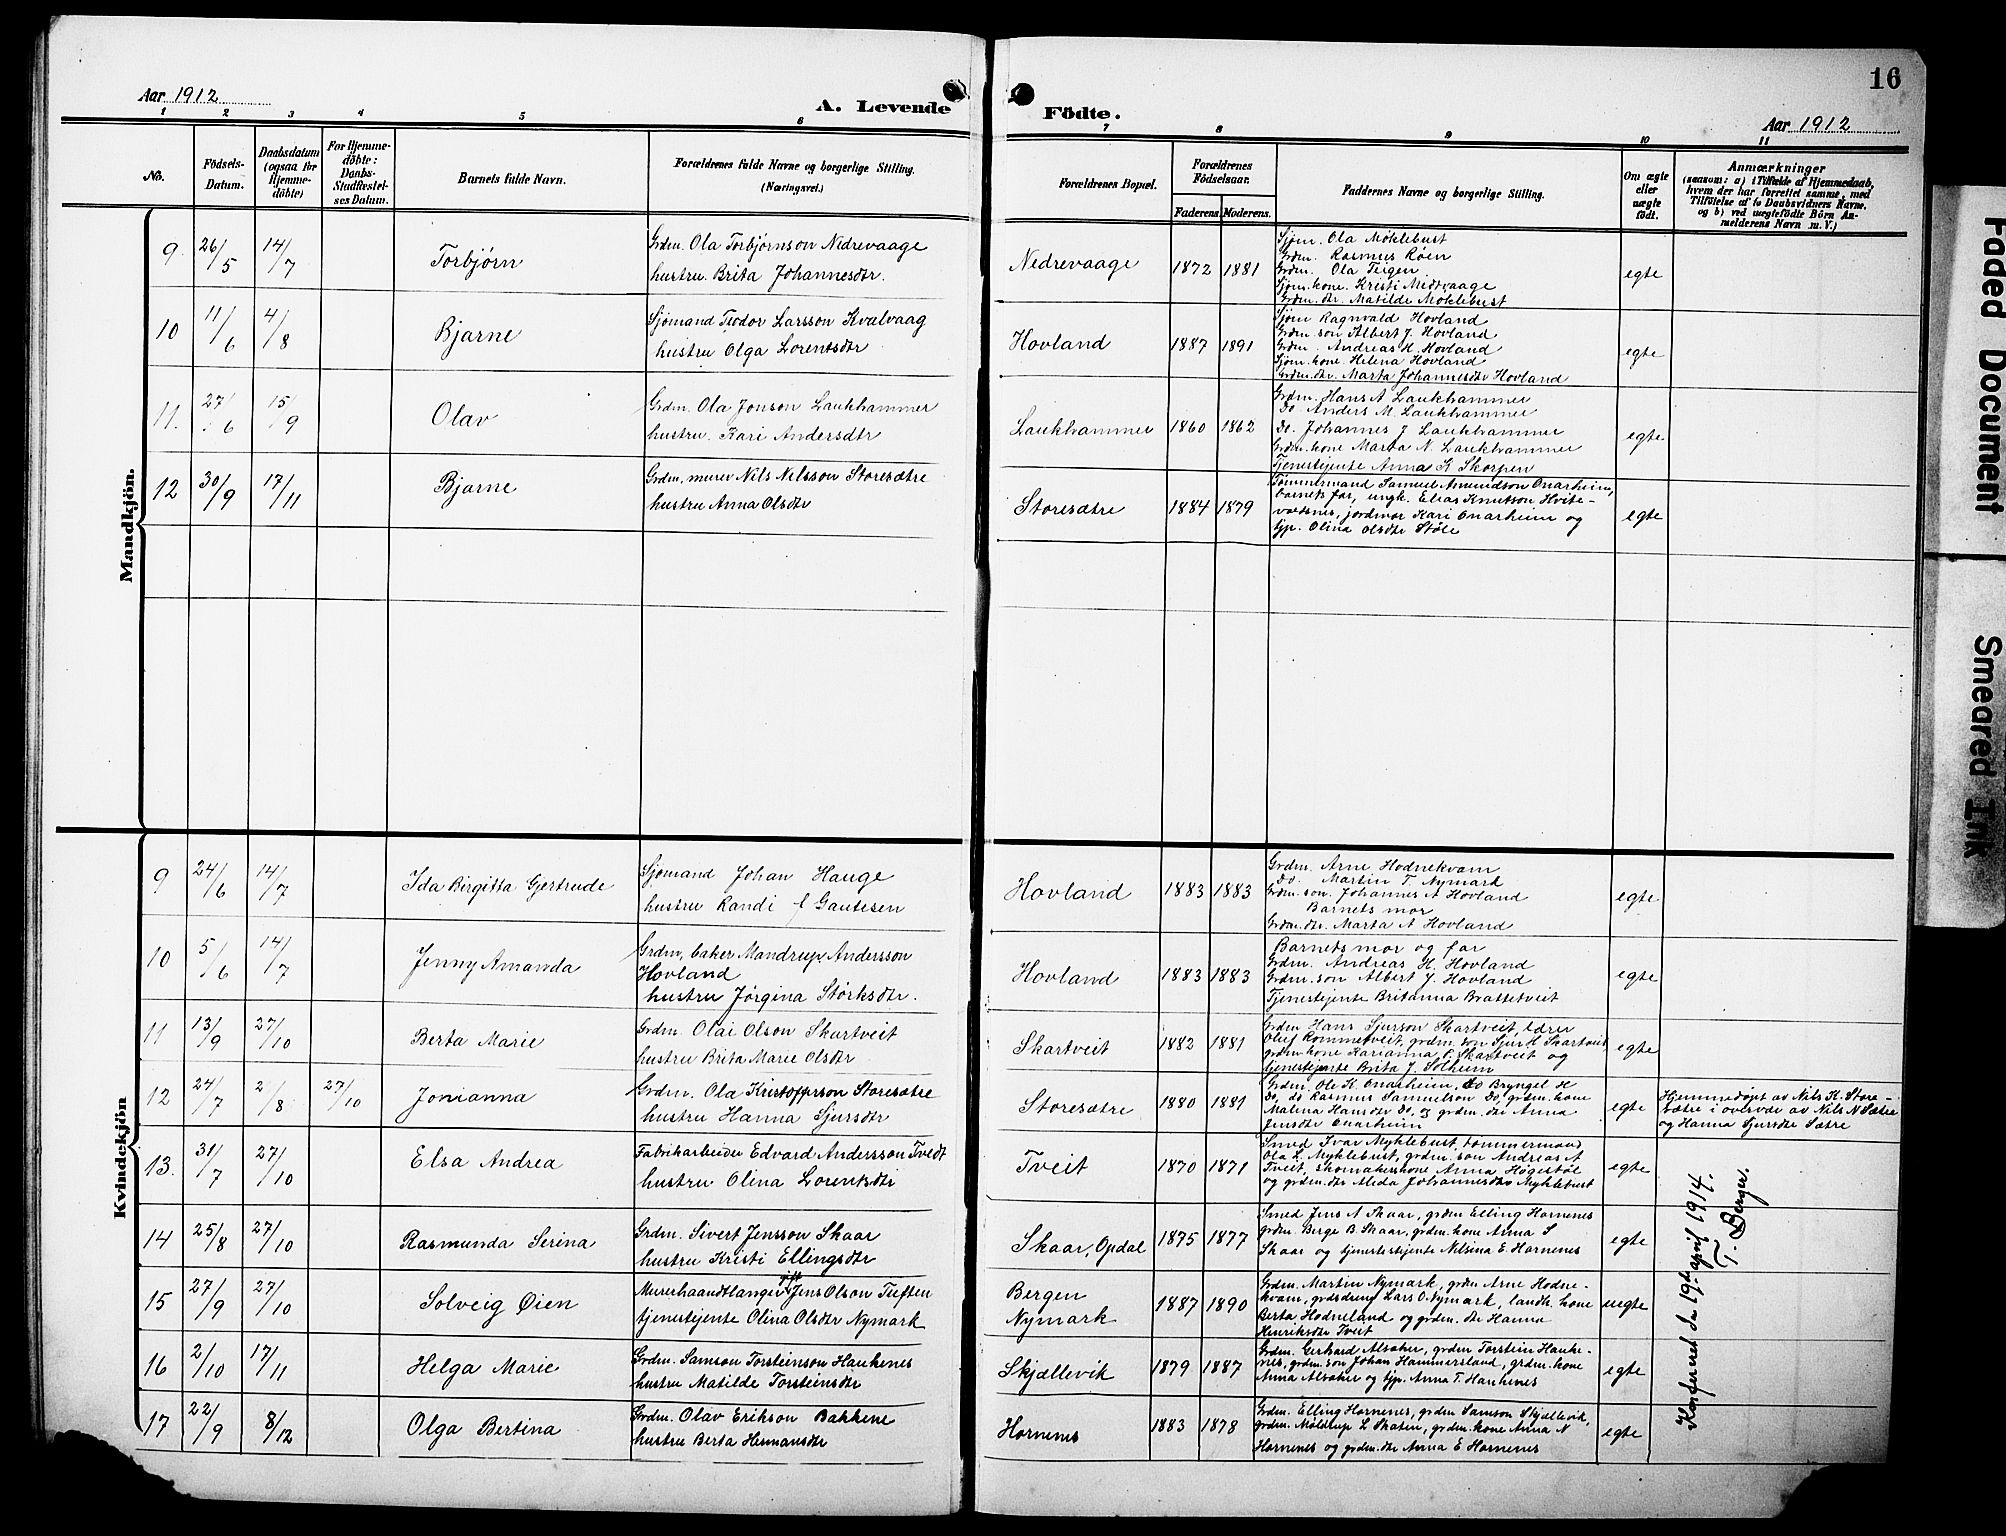 Aar 1912
A. Levende
Födte.
Aar 1912
16
1 2 3 4 5 6 7 8 9 10 11
No.
Födsels-Datum.
Daabsdatum (ogsaa for Hjemme-döbte)
For Hjemme-döbte: Daabs-Stadfæstel-ses Datum.
Barnets fulde Navn.
Forældrenes fulde Navne og borgerlige Stilling.
(Næringsvei.)
Forældrenes Bopæl.
Forældrenes Födselsaar.
Faderens. Moderens.
Faddernes Navne og borgerlige Stilling.
Om ægte eller uægte födt.
Anmærkninger
(saasom: a) i Tilfælde af Hjemmedaab,
hvem der har forrettet samme, med
Tilföielse af to Daabsvidners Navne,
og b) ved uægtefödte Börn An-
melderens Navn m. V.)
Mandkjön.
9 26/5 14/7 Torbjørn
Grdm. Ola Torbjørnson Nedrevaage
hustru. Brita Johannesdtr.
Nedrevaage 1872 1881
Sjøm. Ola Møklebust
Grdm. Rasmus Røen
Grdm. Ola Teigen
Sjøm. kone. Kristi Midtvaage
Grdm. dtr. Matilde Møklebust
egte
10 11/6 4/8 Bjarne
Sjømand Teodor Larsson Kvalvaag
hustru Olga Lorentsdtr
Hovland 1887 1891
Sjøm Ragnvald Hovland
Grdm. søn Albert J. Hovland
Grdm. Andreas H. Hovland
Sjøm. kone Helena Hovland
Grdm. dtr. Marta Johannesdtr Hovland
egte
11. 27/6 15/9 Olav
Grdm. Ola Jonson Laukhammer
hustru. Kari Andersdtr
Laukhammer 1860 1862
Grdm. Hans A Laukhammer
Do Anders M. Laukhammer
Do. Johannes J Laukhammer
Grdm. kone Marta N. Laukhammer
Tjenestejente Anna K Skorpen
egte
12 30/9 17/11 Bjarne
Grdm. murer Nils Nilsson Storesætre
hustru Anna Olsdtr
Storesætre 1884 1879
Tømmermand Samuel Amundson Onarheim,
barnets far, ungk. Elias Knutson Hvite-
vatsnes, jordmor Kari Onarheim og
tjp. Olina Olsdtr Støle
egte
Kvindekjön
9 24/6 14/7 Ida Birgitta Gjertrude
Sjømand Johan Hauge
hustru Randi f Gautesen
Hovland 1883 1883
Grdm. Arne Hodnekvam
Do. Martin T. Nymark
Grdm. son Johannes A Hovland
Barnets mor
Grdm. dtr. Marta A Hovland
egte
10 5/6 14/7 Jenny Amanda
Grdm, baker Mandrup Andersson
Hovland
hustru Jørgina Størksdtr.
Hovland 1883 1883
Barnets mor og far
Grdm. Andreas H. Hovland
Grdm. son Albert J. Hovland
Tjenestejente Britanna Brattetveit
egte
11 13/9 27/10 Berta Marie
Grdm. Olai Olson Skartveit
hustru Brita Marie Olsdtr
Skartveit 1882 1881
Grdm Hans Sjursson Skartveit, lærer
Oluf Rommetveit, grdm. son Sjur H Skartveit,
grdm. kone Karianna P. Skartveit og
tjenestejente Brita J. Solheim
egte
12 24/7 2/8 27/10 Jonianna
Grdm. Ola Kristofferson Storesætre
hustru Hanna Sjursdtr
Storesætre 1880 1881
Grdm. Ole K. Onarheim, do Bryngel H
Do, do Rasmus Samuelson Do, grdm. kone
Malena Hansdtr Do. og grdm. dtr Anna
Jensdtr Onarheim
egte
Hjemmedøpt av Nils K. Store-
sætre i overvær av Nils N Sætre
og Hanna Sjursdtr Sætre
13. 31/7 27/10 Elsa Andrea
Fabrikarbeider Edvard Andersson Tvedt
hustru Olina Lorentsdtr
Tveit 1870 1871
Smed Ivar Myklebust, tømmermand
Ola L. Myklebust, grdm. son Andreas A
Tveit, skomakerkone Anna Høgestøl
og grdm. dtr Alida Johannesdtr Myklebust
egte
14 25/8 27/10 Rasmunda Serina
Grdm. Sivert Jensson Skaar
hustru Kristi Ellingsdtr
Skaar, Opdal 1875 1877
Smed Jens A Skaar, grdm Elling Hornenes
grdm. Berge B. Skaar, grdm. kone Anna S
Skaar og tjenestejente Nilsina E. Hornenes
egte
15 27/9 27/10 Solveig Øien
Murerhaandtlanger gift Jens Olson Tuften
tjenestejente Olina Olsdtr Nymark
Bergen
Nymark 1887 1890
Grdm. Martin Nymark, grdm Arne Hodne-
kvam, grdsdreng Lars O. Nymark, landh. kone
Berta Hodneland og grdm. dtr Hanna
Henriksdtr Tveit
uegte
16 2/10 17/11 Helga Marie
Grdm. Samson Torsteinson Haukenes
hustru Matilde Torsteinsdtr
Skjællevik 1879 1887
Grdm. Gerhard Alsaker, grdm Torstein Hauke-
nes, grdm. son Johan Hammersland, grdm. kone
Anna Alsaker og tjp. Anna T. Haukenes
egte
17 22/9 8/12 Olga Bertina
Grdm. Olav Erikson Bakkene
hustru Berta Hermansdtr
Hornenes 1883 1878
Grdm. Elling Hornenes, grdm Samson Skjællevik,
grdm. Møldrup L Skaten, grdm. kone Anna N
Hornenes og grdm. dtr Anna E Hornenes
egte
Konferert da 19de april 1914.
T. Berger.
Faded Document
Smeared Ink